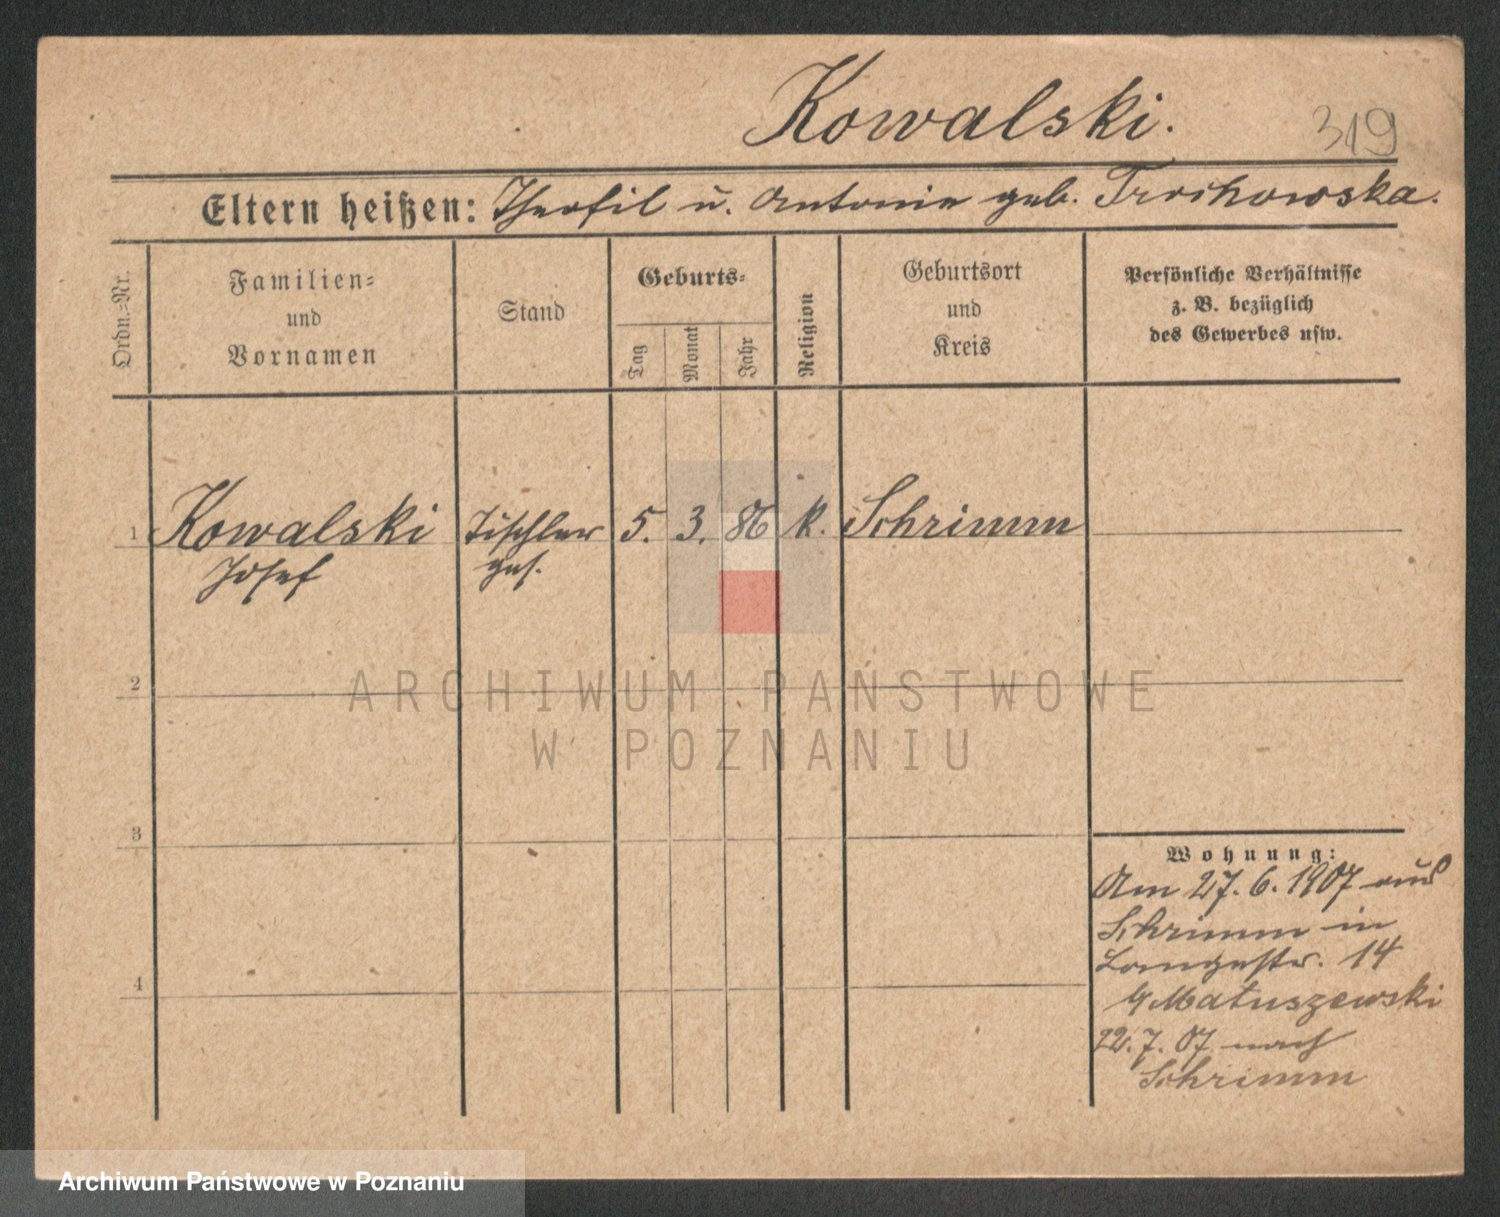 Kowalski.
319
Eltern heißen: Theofil u. Antonie geb. Trochowska.
Ordn.-Nr.
Familien-
und
Vornamen
Stand
Geburts-
Tag
Monat
Jahr
Religion
Geburtsort
und
Kreis
Persönliche Verhältnisse
z. B. bezüglich
des Gewerbes usw.
1 Kowalski Tischler 5. 3. 86 k. Schrimm
Josef ges.
2
ARCHIWUM PAŃSTWOWE
W POZNANIU
3
Wohnung:
Am 27. 6. 1907 aus
Schrimm in
Langestr. 14
Matuszewski
4
22. 7. 07 nach
Schrimm
Archiwum Państwowe w Poznaniu